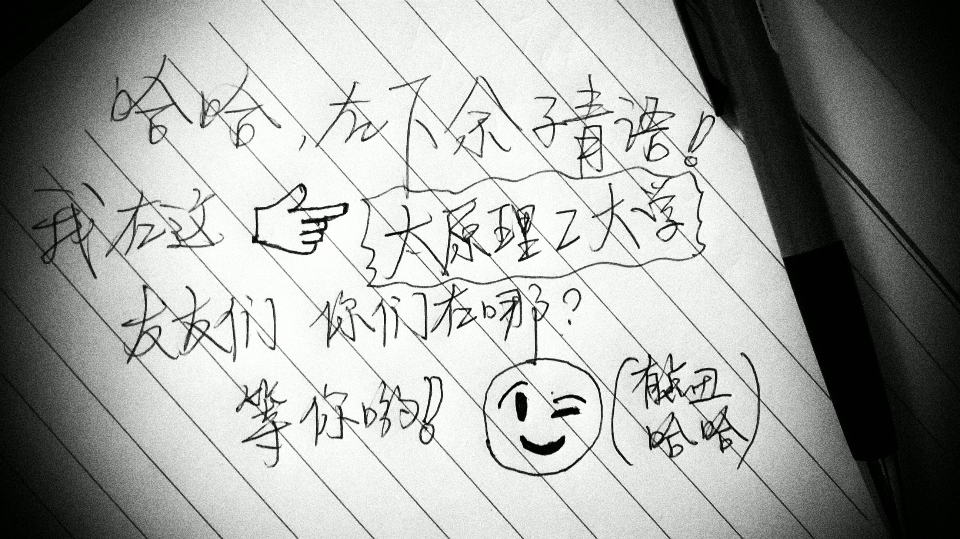 哈哈,在下余子青语!
我在这 太原理工大学
友友们 你们在哪?
等你哟!
(有点丑
哈哈)